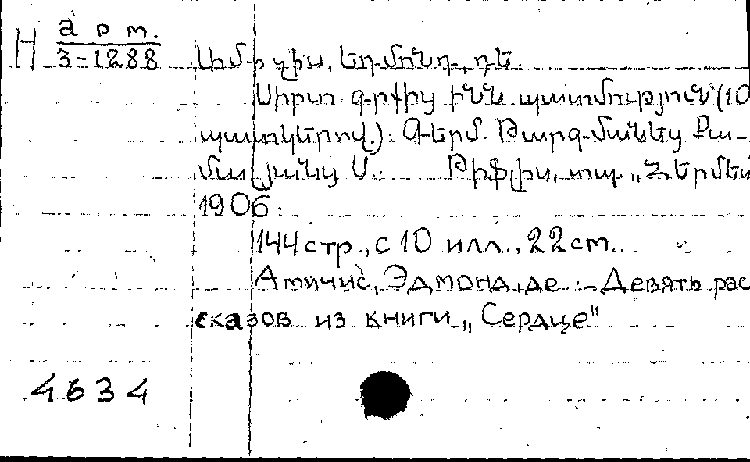 Н арт.
3-1288
Ամիչիս, Եդմոնդ, դե
Սիրտ գրքից ինն պատմություն (10
պատկերով.): Գերմ. Թարգմանեց Քա-
մալյանց Ս. Թիֆլիս, տպ. „Հերմես
1906.
144 стр., с 10 илл., 22 см.
Амичис, Эдмонд, де :- Девять рас
сказов из книги „Сердце"
4634